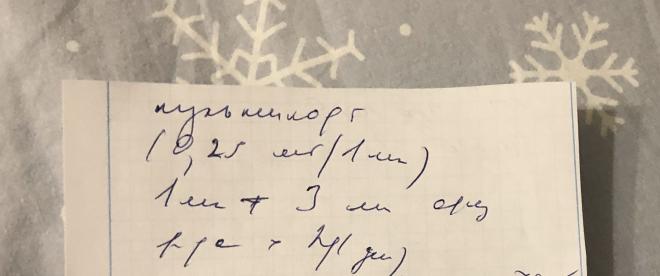 пульмикорт
(0,25 мг/1 мл)
1 мл + 3 мл физ
р-ра × 2р(дн)